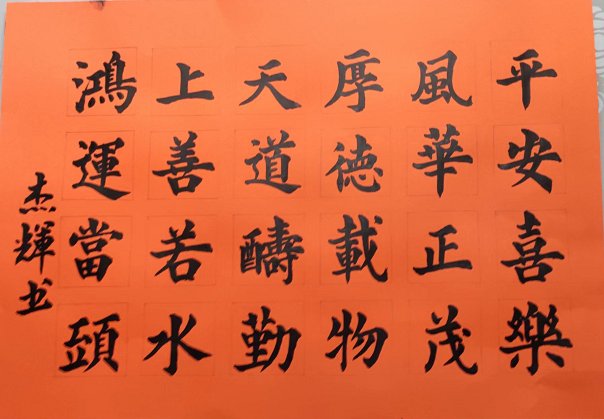 平安喜樂
風華正茂
厚德載物
天道醻勤
上善若水
鴻運當頭
杰輝书